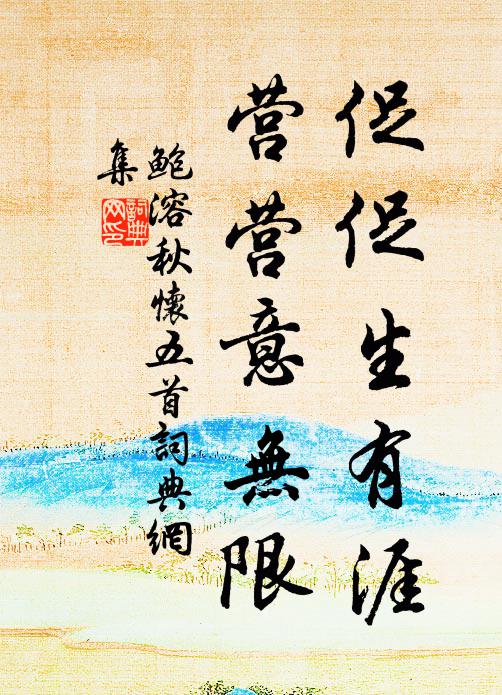 促促生有涯
营营意無限
鲍溶秋懷五首詞典網
集
詞典
网印